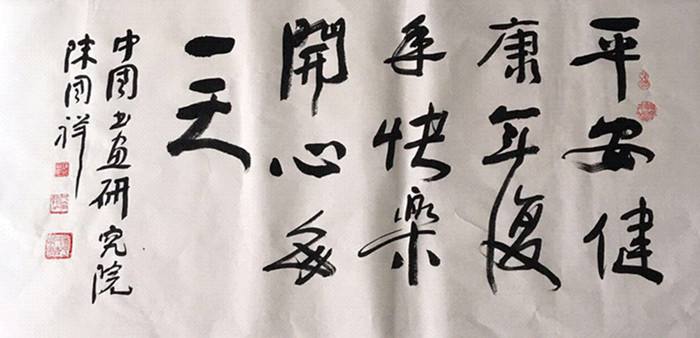 平安健
康年復
年快樂
開心每
一天
中國书画研究院
陈國祥